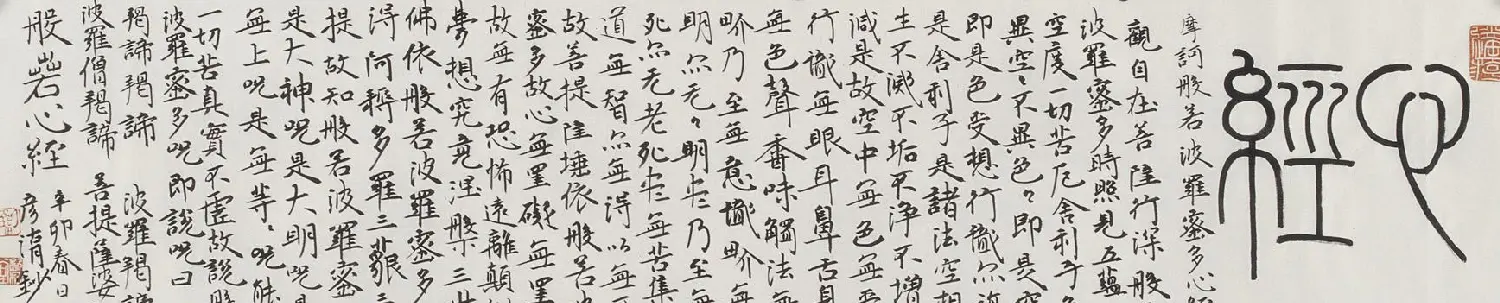 心經
摩訶般若波羅蜜多心經
觀自在菩薩行深般
波羅蜜多時照見五蘊
空度一切苦厄舍利子
異空々不異色々即是空
即是色受想行識亦
是舍利子是諸法空相
生不滅不垢不淨不增
減是故空中無色無
行識無眼耳鼻舌身
無色聲香味觸法無
界乃至無意識界無
明亦无々明盡乃至無
死亦无老死盡無苦集
道無智亦無得以無
故菩提薩埵依般若
蜜多故心無罣礙無罣
故無有恐怖遠離顛
夢想究竟涅槃三世
佛依般若波羅蜜多
得阿耨多羅三藐三
提故知般若波羅蜜
是大神咒是大明咒是
無上咒是無等々咒能
一切苦真實不虛故說般
波羅蜜多咒即說咒曰
揭諦揭諦 波羅揭諦
波羅僧揭諦 菩提薩婆
般若心經 辛卯春日